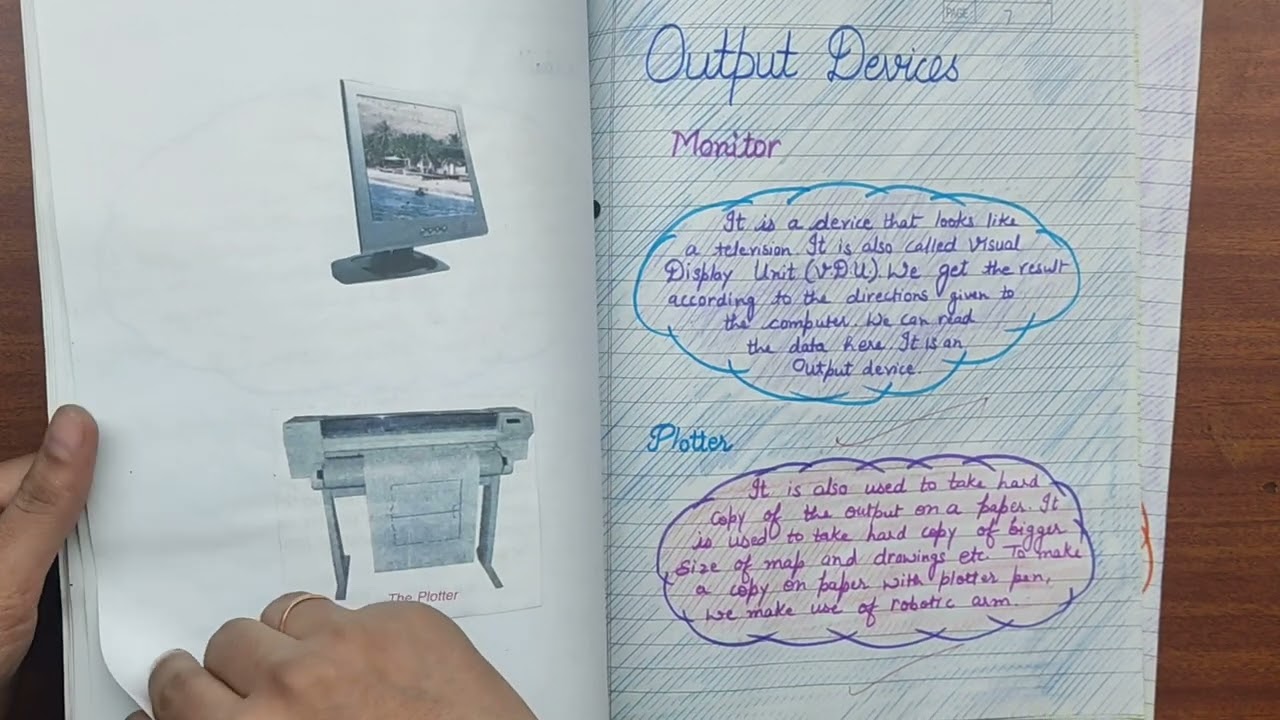 The Plotter
PAGE 7
Output Devices
Monitor
It is a device that looks like
a television. It is also called Visual
Display Unit (V.D.U). We get the result
according to the directions given to
the computer. We can read
the data here. It is an
Output device.
Plotter
It is also used to take hard
copy of the output on a paper. It
is used to take hard copy of bigger
size of map and drawings etc. To make
a copy on paper with plotter pen,
we make use of robotic arm.